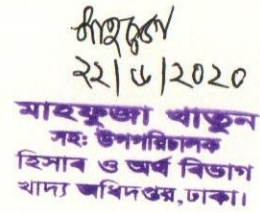 মাহফুজা
২২|৬|2020
মাহফুজা খাতুন
সহঃ উপপরিচালক
হিসাব ও অর্থ বিভাগ
খাদ্য অধিদপ্তর, ঢাকা।